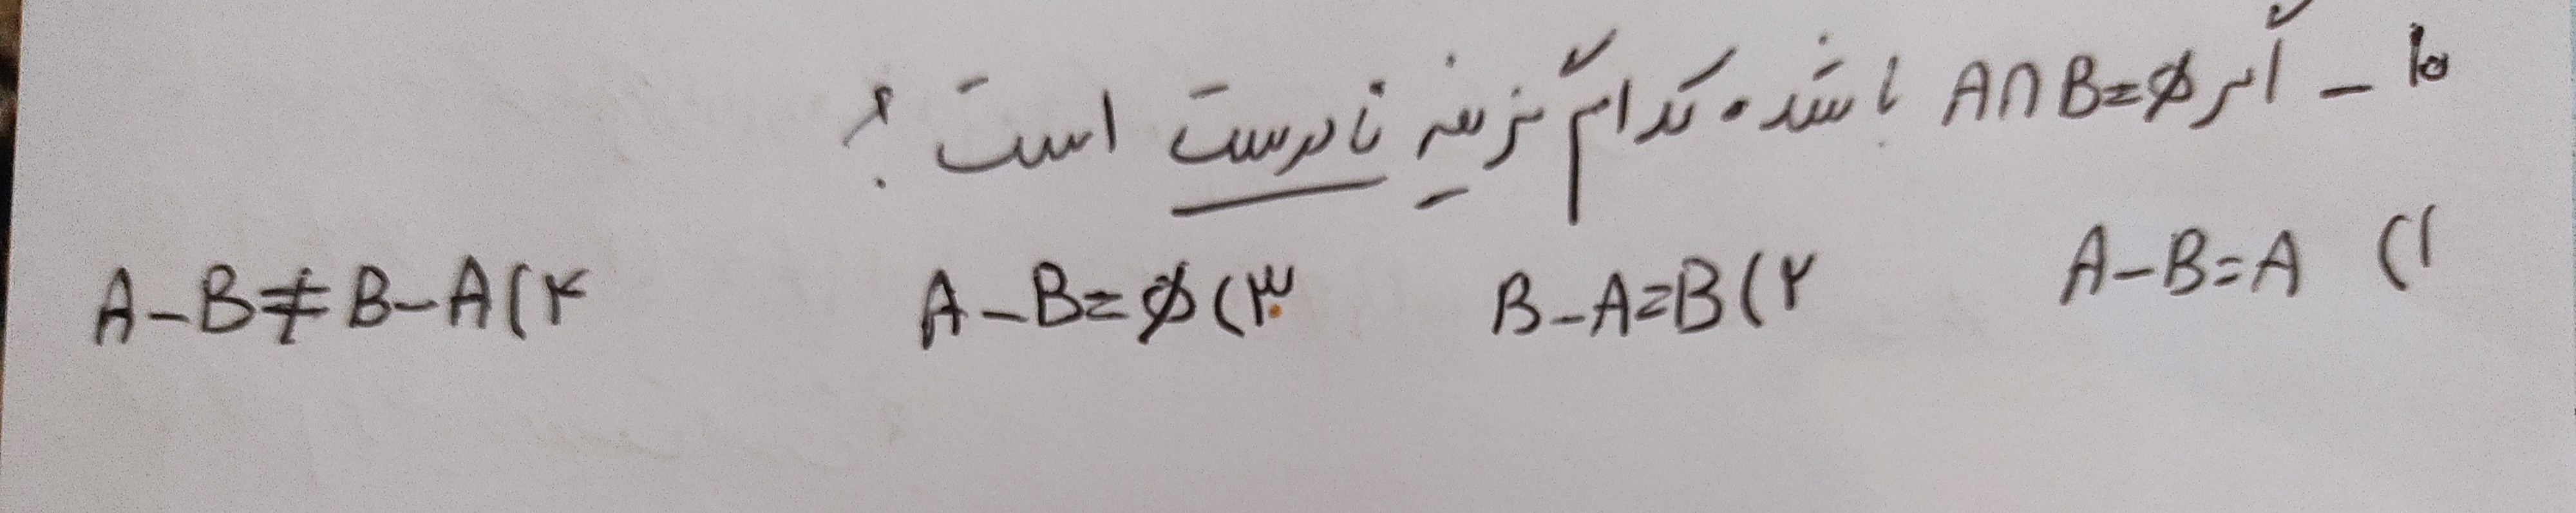 ۱۰ - اگر A∩B=∅ باشد، کدام گزینه نادرست است؟
۱) A-B=A ۲) B-A=B ۳) A-B=∅ ۴) A-B≠B-A